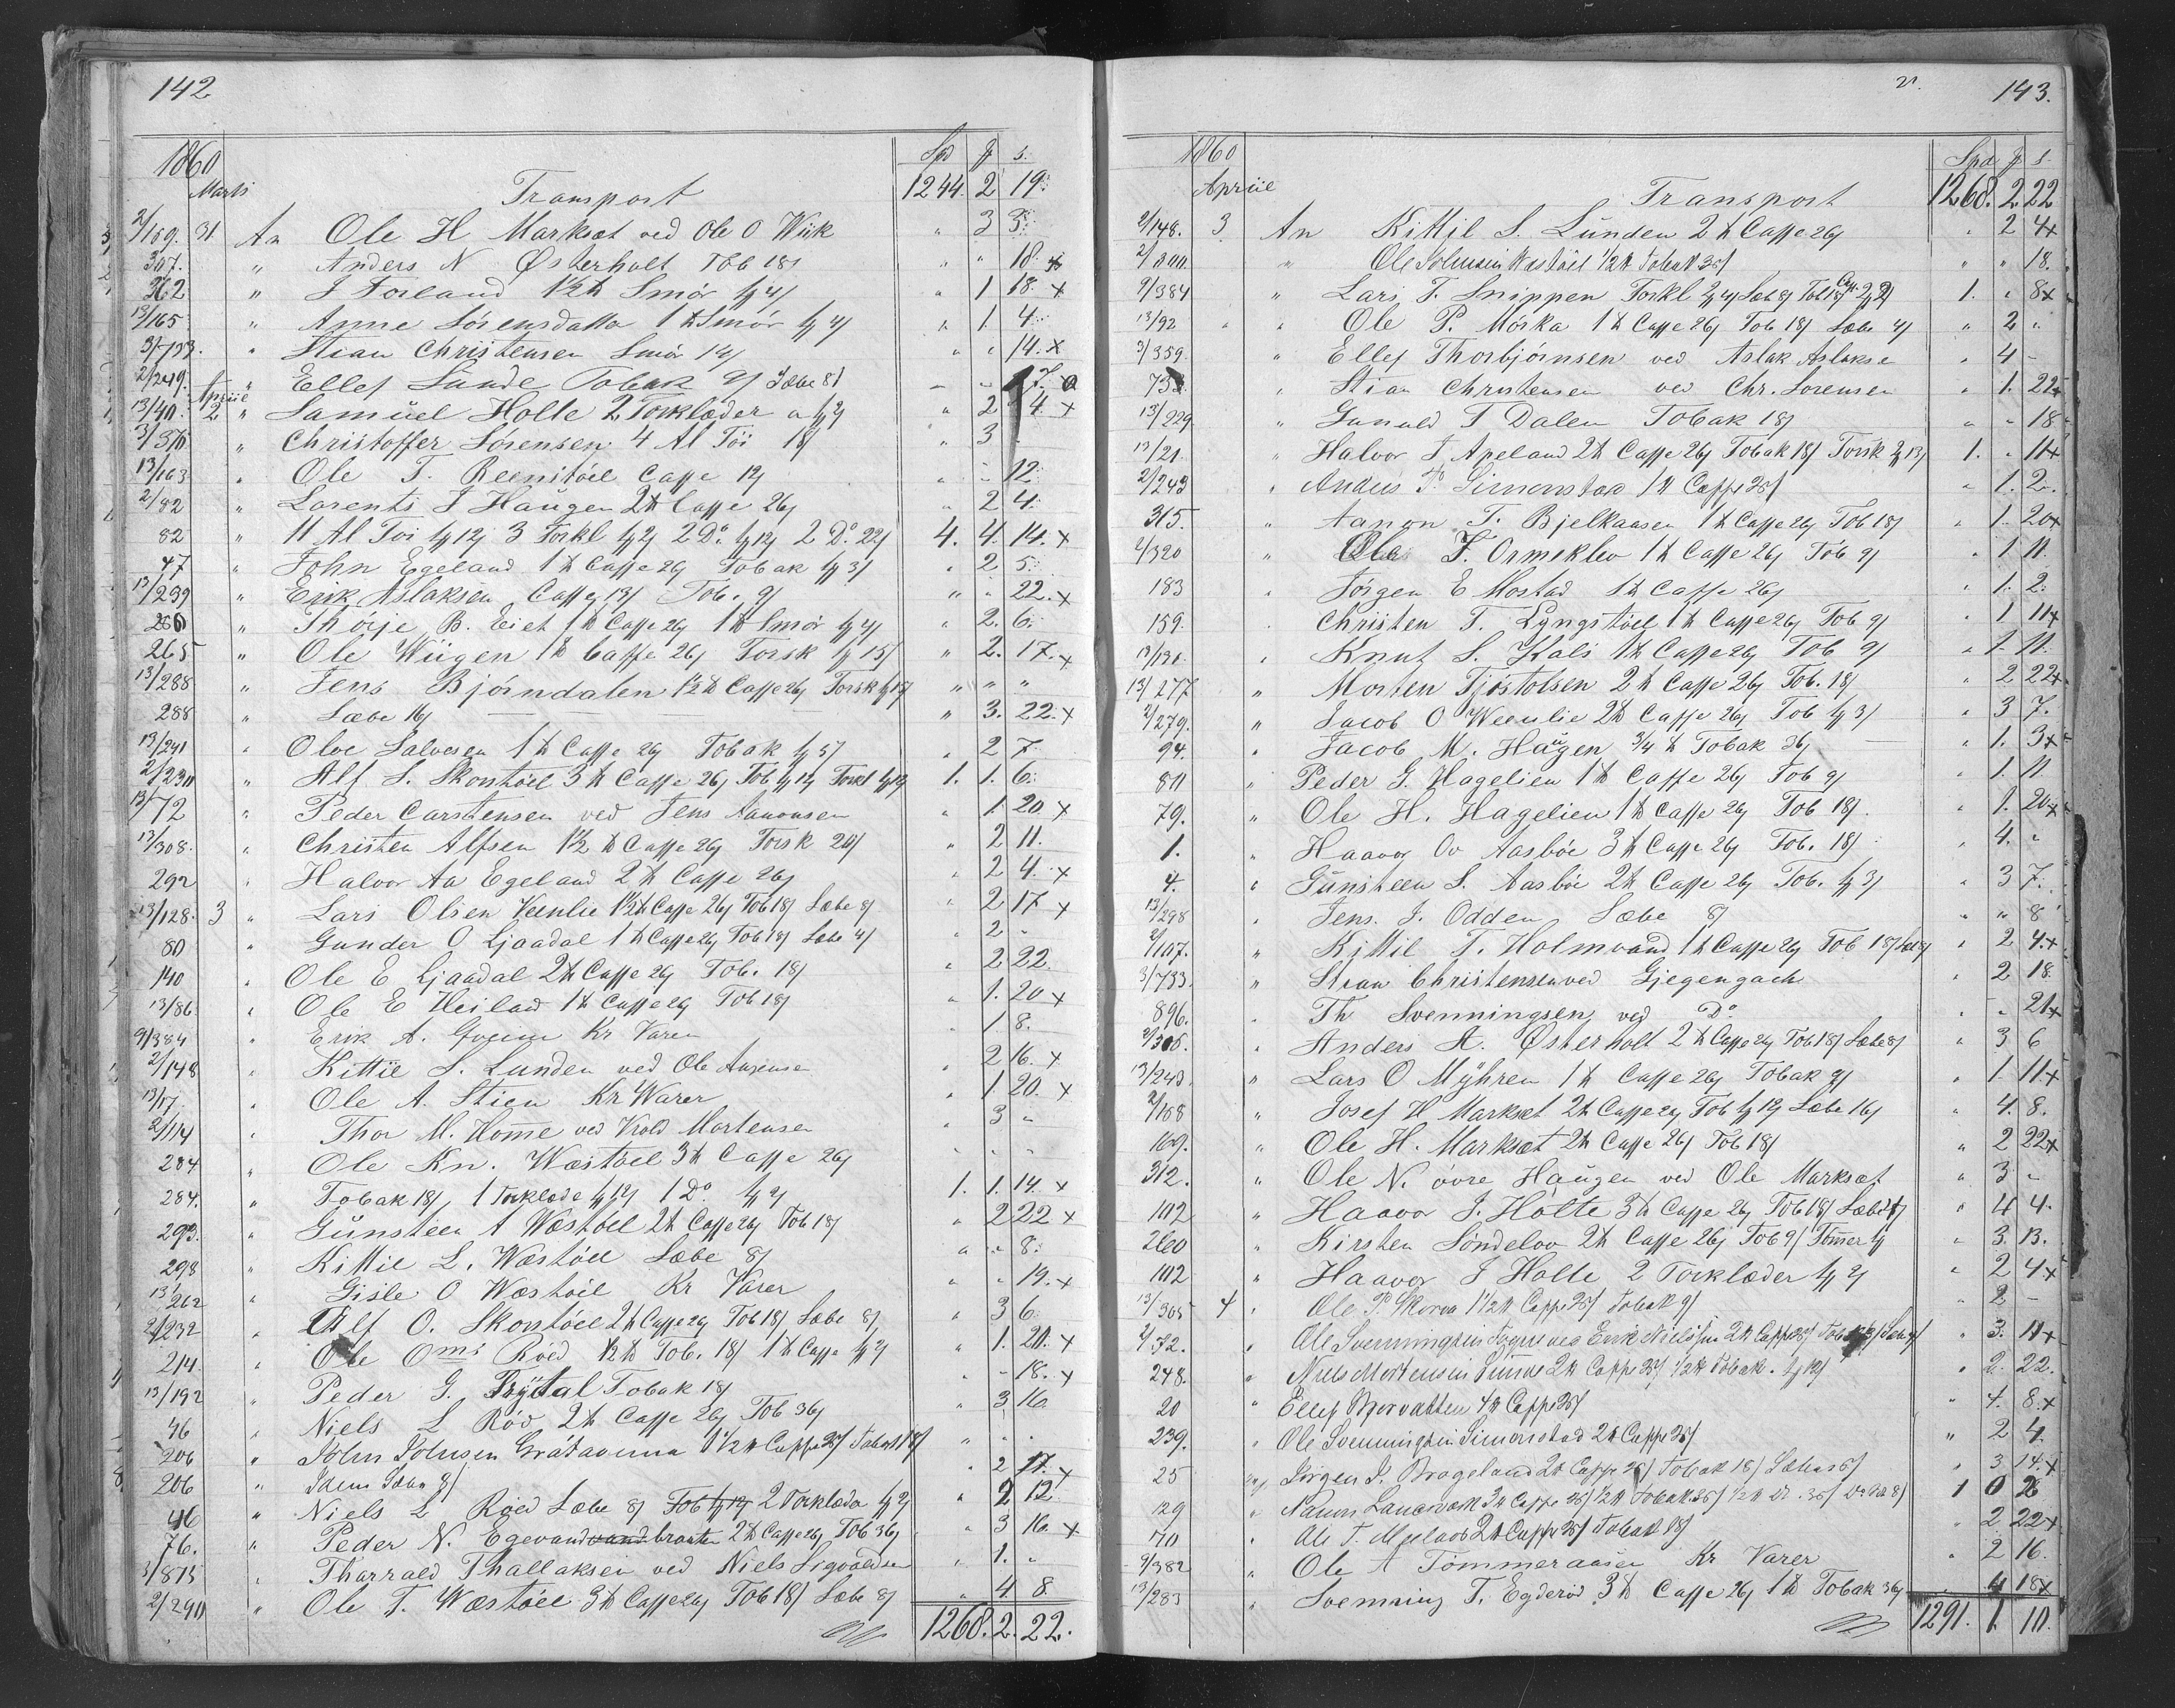 142
1860 Spd ₰ s.
Marts Transport 1244. 2 19.
2/169. 31 An Ole H Marksæt ved Ole O Wiik " 3 3.
307. " Anders N Østerholt Tob 18 " " 18. x
312 " J Forland 1½ ℔ Smør 4 " 1 18. x
13/165 " Anne Sørensdatter 1 ℔ Smør 4 " 1. 4.
3/733. " Stian Christensen Smør 14 " " 14. x
2/249. " Ellef Lunde Tobak 9 Sæbe 8 17.
Apriil
13/40. 2 " Samuel Holte 2 Torklæder a 2 " 2 4. x
3/370 " Christoffer Sørensen 4 Al Töi 18 " 3 -
13/163 " Ole T. Reenstöel Caffe 12 " " 12.
2/82 " Lorents J Haugen 2 ℔ Caffe 26 " 2 4.
82 " 11 Al Toi 12 3 Torkl 2 2 Do 12 2 Do 22 4. 4. 14. x
47 " John Egeland 1 ℔ Caffe 26 Tobak 3 " 2 5
13/239 " Erik Aslaksen Caffe 13 Tob. 9 " " 22. x
260 " Thorje B. Eiet 1 ℔ Caffe 26 1 ℔ Smør 4 " 2. 6.
265 " Ole Wiigen 1 ℔ Caffe 26 Torsk 15 " 2. 17. x
13/288 " Jens Bjørndalen 1½ ℔ Caffe 26 Torsk 13 " " "
288 " Sæbe 16 " 3. 22. x
13/241 " Olve Salvesen 1 ℔ Caffe 26 Tobak 5 " 2 7
2/230 " Alf S. Skontöel 3 ℔ Caffe 26 Tob 12 Torkl 12 1. 1. 6.
13/72 " Peder Carstensen ved Jens Aanonsen " 1. 20 x
13/308. " Christen Alfsen 1½ ℔ Caffe 26 Torsk 20 " 2 11.
292 " Halvor Aa Egeland 2 ℔ Caffe 26 " 2 4. x
13/128. 3 " Lars Olsen Veenlie 1½ ℔ Caffe 26 Tob 18 Sæbe 8 " 2 17 x
80 " Gunder O Ljaadal 1 ℔ Caffe 26 Tob 18 Sæbe 4 " 2 -
140 " Ole E Ljaadal 2 ℔ Caffe 26 Tob. 18 " 2 22
13/86. " Ole E Heiland 1 ℔ Caffe 26 Tob 18 " 1. 20 x
9/384 " Erik A. Kr Varer " 1. 8.
2/148 " Kittil S. Lunden ved Ole " 2 16. x
13/17. " Ole A. Stien Kr Warer " 1 20. x
2/114 " Thor M. Homme ved Mortensen " 3 "
284 " Ole Kn. Wæstöel 3 ℔ Caffe 26 " " "
284. " Tobak 18 1 Torklæde 12 1 Do 2 1. 1. 14. x
293. " Günsteen A Wæstöel 2 ℔ Caffe 26 Tob 18 " 2 22 x
298 " Kittil L. Wæstöel Sæbe 8 " " 8.
13/262 " Gisle O Wæstöel Kr Varer " " 19. x
2/232 " Alf O. Skontöel 2 ℔ Caffe 26 Tob 18 Sæbe 8 " 3 6.
214. " Ole Oms Röed ½ ℔ Tob. 18 1 ℔ Caffe 2 " 1. 20. x
13/192 " Peder G. Trytal Tobak 18 " - 18. x
46 " Niels L Röd 2 ℔ Caffe 26 Tob 36 " 3 16
206 " John Johnsen 1½ ℔ Caffe 26 Tobak 18 " " "
206 " Idem Sæbe 8 " 2 17. x
46 " Niels L Röed Sæbe 8 Tob 12 2 Torklæder 2 " 2 12.
76. " Peder N. Egevand braaten 2 ℔ Caffe 26 Tob 36 " 3 16. x
3/815 " Tharrald Thallaksen ved Niels Sigvaldsen " 1. "
2/290 " Ole T. Wæstöel 3 ℔ Caffe 26 Tob 18 Sæbe 8 " 4 8.
1268. 2. 22.
143.
1860 Spd ₰ s.
Apriil Transport 1268. 2 22
2/148. 3 An Kittil S. Lunden 2 ℔ Caffe 26 " 2 4x
2/300. " Ole Johnsen Wæstöel ½ ℔ Tobak 36 " " 18.
9/384 " Lars T. Snippen Torkl 2 4 Sæb 8 Tob 18 Caf. 22 1. " 8x
13/92 " Ole P. Mörka 1 ℔ Caffe 26 Tob 18 Sæbe 4 " 2 "
3/359. " Ellef Thorbjørnsen ved Aslak Aslaksen " 4 -
733 " Stian Christensen ved Chr. Sorensen " 1. 22x
13/229 " Gunuld T Dalen Tobak 18 " " 18
13/21. " Halvor J Apeland 2 ℔ Caffe 26 Tobak 18 Torsk 13 1. " 11x
2/243 " Anders P. Simonstad 1 ℔ Caffe 26 " 1. 2.
315. " Aanon T. Bjelkaasen 1 ℔ Caffe 26 Tob 18 " 1. 20x
2/320 " Ole T. Ormeklev 1 ℔ Caffe 26 Tob 9 " 1 11.
183 " Jørgen E Mostad 1 ℔ Caffe 26 " 1. 2.
159. " Christen T. Lyngstöel 1 ℔ Caffe 26 Tob 9 " 1 11x
13/131. " Knut S. Kals 1 ℔ Caffe 26 Tob 9 " 1. 11.
13/277 " Morten Tjöstolsen 2 ℔ Caffe 26 Tob. 18 " 2 22x
2/279. " Jacob O Weenlie 2 ℔ Caffe 26 Tob 3 " 3 7.
94. " Jacob M. Haugen 3/4 ℔ Tobak 36 " 1. 3x
80 " Peder G. Hagelien 1 ℔ Caffe 26 Tob 9 " 1. 11
79. " Ole H. Hagelien 1 ℔ Caffe 26 Tob 18 " 1. 20x
1. " Haavor Ov Aasböe 3 ℔ Caffe 26 Tob. 18 " 4. "
4. " Günsteen S. Aasböe 2 ℔ Caffe 26 Tob. 3 " 3 7.
13/298 " Jens. J. Odden Sæbe 8 " " 8
2/107. " Kittil T. Holmvand 1 ℔ Caffe 26 Tob 18 Sæb 8 " 2 4.x
3/733. " Stian Christensen ved Gjegengach " 2 18.
896. " Th Svenningsen ved Do - " 21x
2/305. " Anders A. Østerholt 2 ℔ Caffe 26 Tob 18 Sæbe 8 " 3 6
13/243. " Lars O Myhren 1 ℔ Caffe 26 Tobak 9 " 1. 11.x
2/168 " Josef H Marksæt 2 ℔ Caffe 26 Tob 12 Sæbe 16 " 4. 8.
169. " Ole H. Marksæt 2 ℔ Caffe 26 Tob 18 " 2 22x
312. " Ole N. övre Haugen ved Ole Marksæt " 3 "
102 " Haavor J. Holte 3 ℔ Caffe 26 Tob 18 Sæbe 4 " 4 4.
260 " Kirsten Söndelov 2 ℔ Caffe 26 Tob 9 Tömmer " 3. 13.
102 " Haavor J Holte 2 Torklæder 2 " 2 4x
13/305 4 " Ole P. Skorva 1½ ℔ Caffe 26 Tobak 9 " 2 -
2/72. " Ole Svenningsen ved Erik Nielssen 2 ℔ Caffe 26 " 3. 11x
248. " Niels Mortensen 2 ℔ Caffe 26 ½ ℔ Tobak. 12 " 2. 22.
20 " Ellef Mjorvatten 4 ℔ Caffe 26 " 4. 8.x
239. " Ole Svenningsen Simonstad 2 ℔ Caffe 26 " 2 4.
25 " Jörgen J. Brageland 2 ℔ Caffe 26 Tobak 18 " 3 14.x
129 " 3 ℔ Caffe 26 ½ ℔ Tobak 36 1 0 26
70 " Ole T. 2 ℔ Caffe 26 Tobak 18 " 2 22x
9/382 " Ole A Tömmeraasen Kr Varer " 2 16.
13/283 " Svenning T. Egderöd 3 ℔ Caffe 26 1 ℔ Tobak 36 " 4 18x
1291. 1. 10.